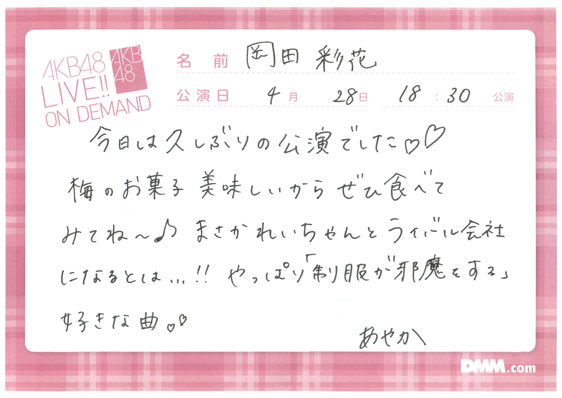 AKB48
LIVE!!
ON DEMAND
AKB
48
名前 岡田彩花
公演日 4月 28日 18:30 公演
今日は久しぶりの公演でした♡♡
梅のお菓子美味しいからぜひ食べて
みてね〜♪ まさかれいちゃんとライバル会社
になるとは…!! やっぱり「制服が邪魔をする」
好きな曲♡♡
あやか
DMM.com